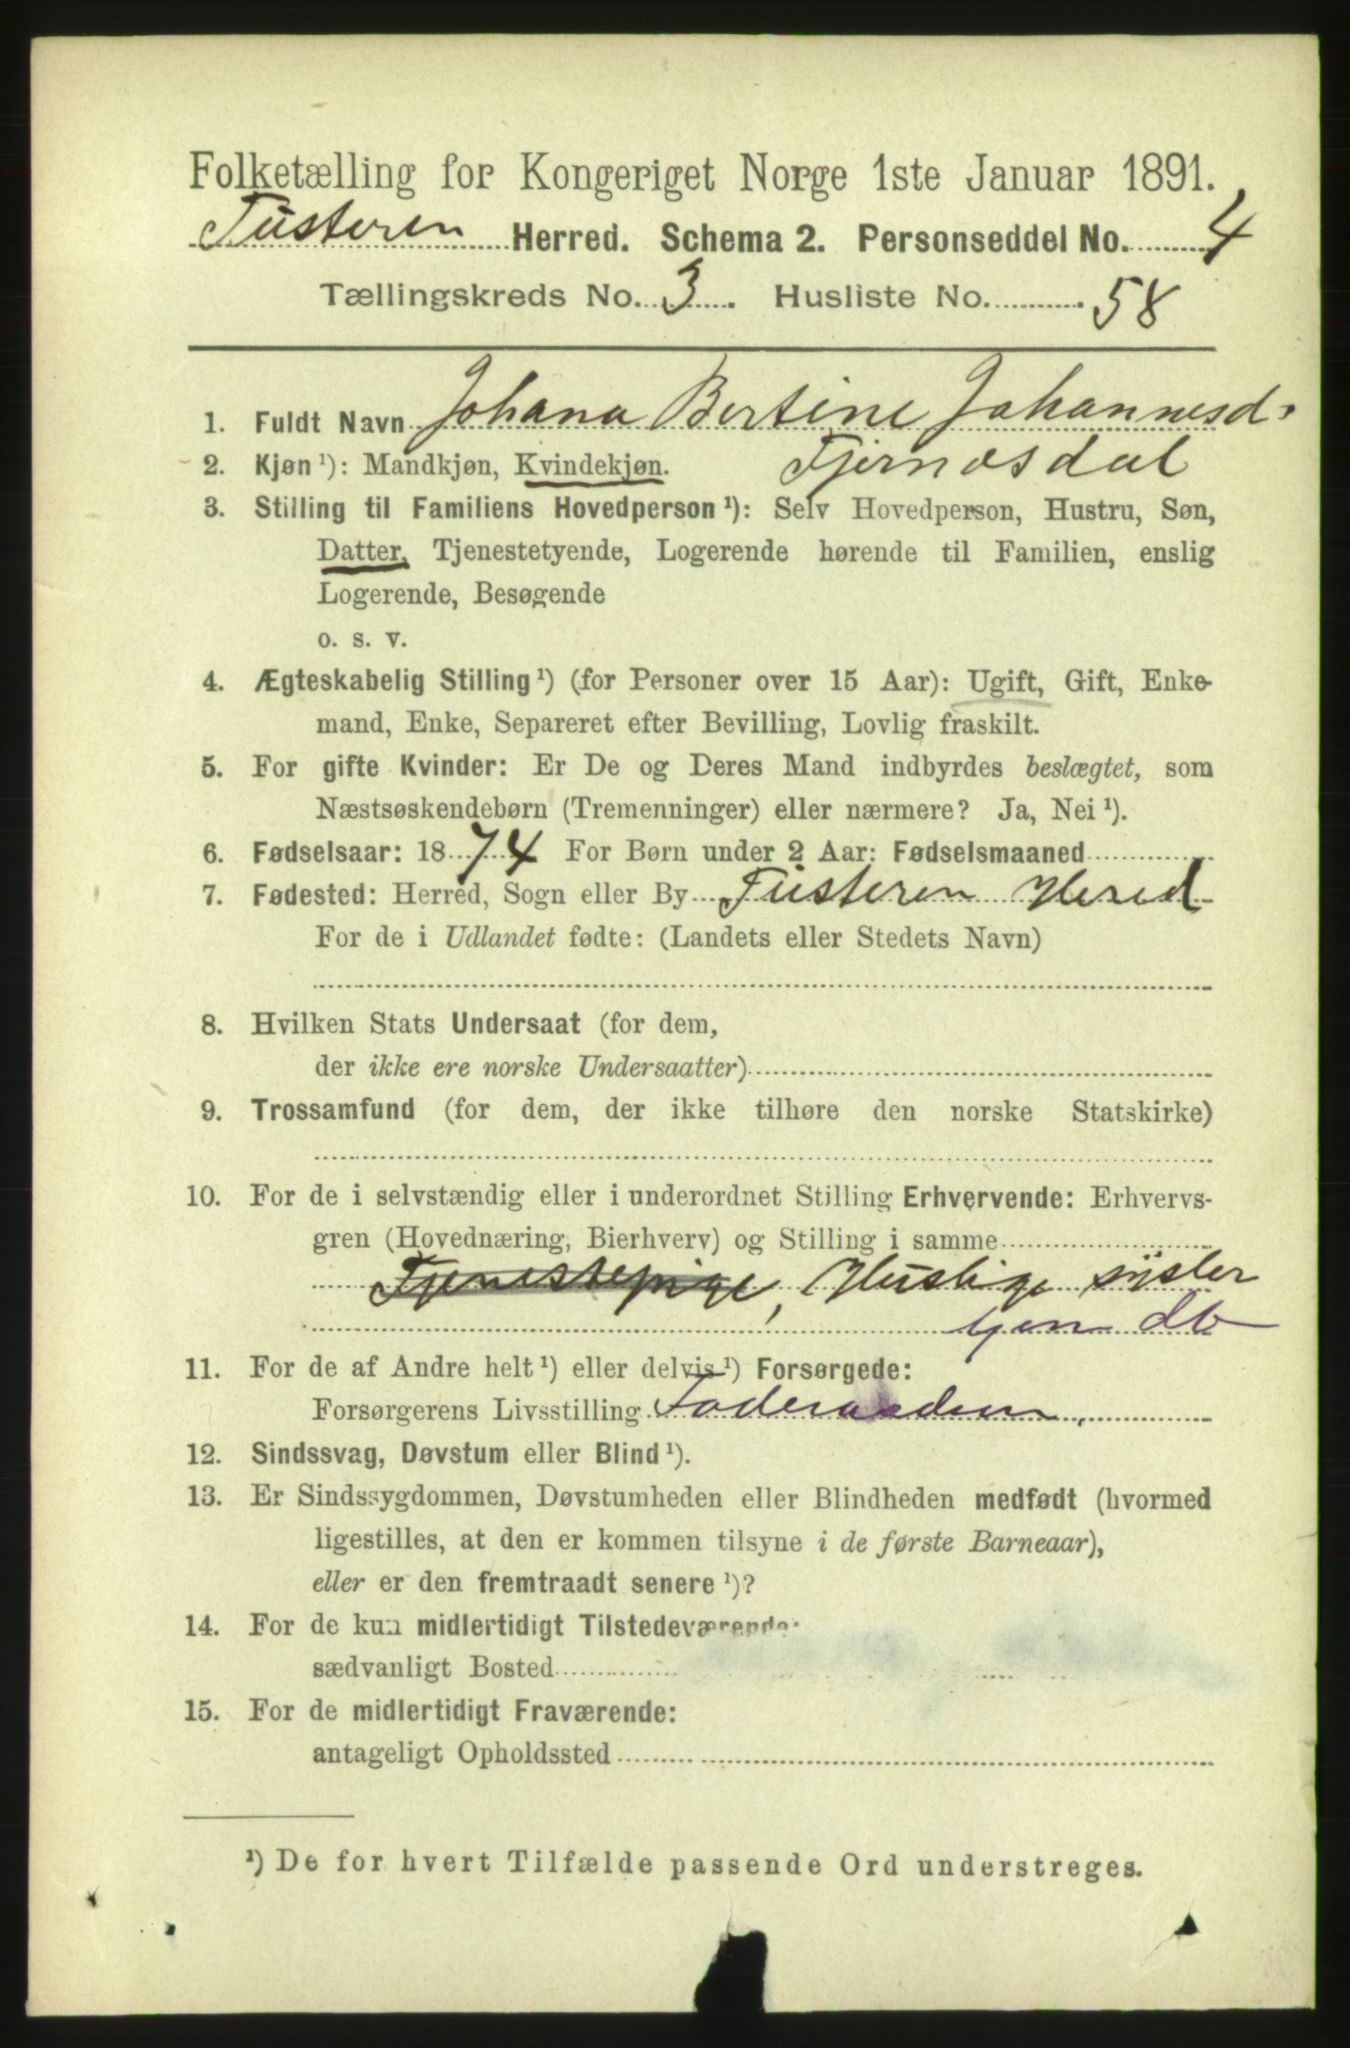 Folketælling for Kongeriget Norge 1ste Januar 1891.
Tusteren Herred. Schema 2. Personseddel No. 4
Tællingskreds No. 3. Husliste No. 58
1. Fuldt Navn Johana Bertine Johannesd.
2. Kjøn ¹): Mandkjøn, Kvindekjøn. Tjernesdal
3. Stilling til Familiens Hovedperson ¹): Selv Hovedperson, Hustru, Søn,
Datter, Tjenestetyende, Logerende hørende til Familien, enslig
Logerende, Besøgende
o. s. v.
4. Ægteskabelig Stilling ¹) (for Personer over 15 Aar): Ugift, Gift, Enke-
mand, Enke, Separeret efter Bevilling, Lovlig fraskilt.
5. For gifte Kvinder: Er De og Deres Mand indbyrdes beslægtet, som
Næstsøskendebørn (Tremenninger) eller nærmere? Ja, Nei ¹).
6. Fødselsaar: 1874 For Børn under 2 Aar: Fødselsmaaned
7. Fødested: Herred, Sogn eller By Tusteren Hered
For de i Udlandet fødte: (Landets eller Stedets Navn)
8. Hvilken Stats Undersaat (for dem,
der ikke ere norske Undersaatter)
9. Trossamfund (for dem, der ikke tilhøre den norske Statskirke)
10. For de i selvstændig eller i underordnet Stilling Erhvervende: Erhvervs-
gren (Hovednæring, Bierhverv) og Stilling i samme
Tjenestepige, Huslige sysler
11. For de af Andre helt ¹) eller delvis ¹) Forsørgede:
Forsørgerens Livsstilling
12. Sindssvag, Døvstum eller Blind ¹).
13. Er Sindssygdommen, Døvstumheden eller Blindheden medfødt (hvormed
ligestilles, at den er kommen tilsyne i de første Barneaar),
eller er den fremtraadt senere ¹)?
14. For de kun midlertidigt Tilstedeværende:
sædvanligt Bosted
15. For de midlertidigt Fraværende:
antageligt Opholdssted
¹) De for hvert Tilfælde passende Ord understreges.